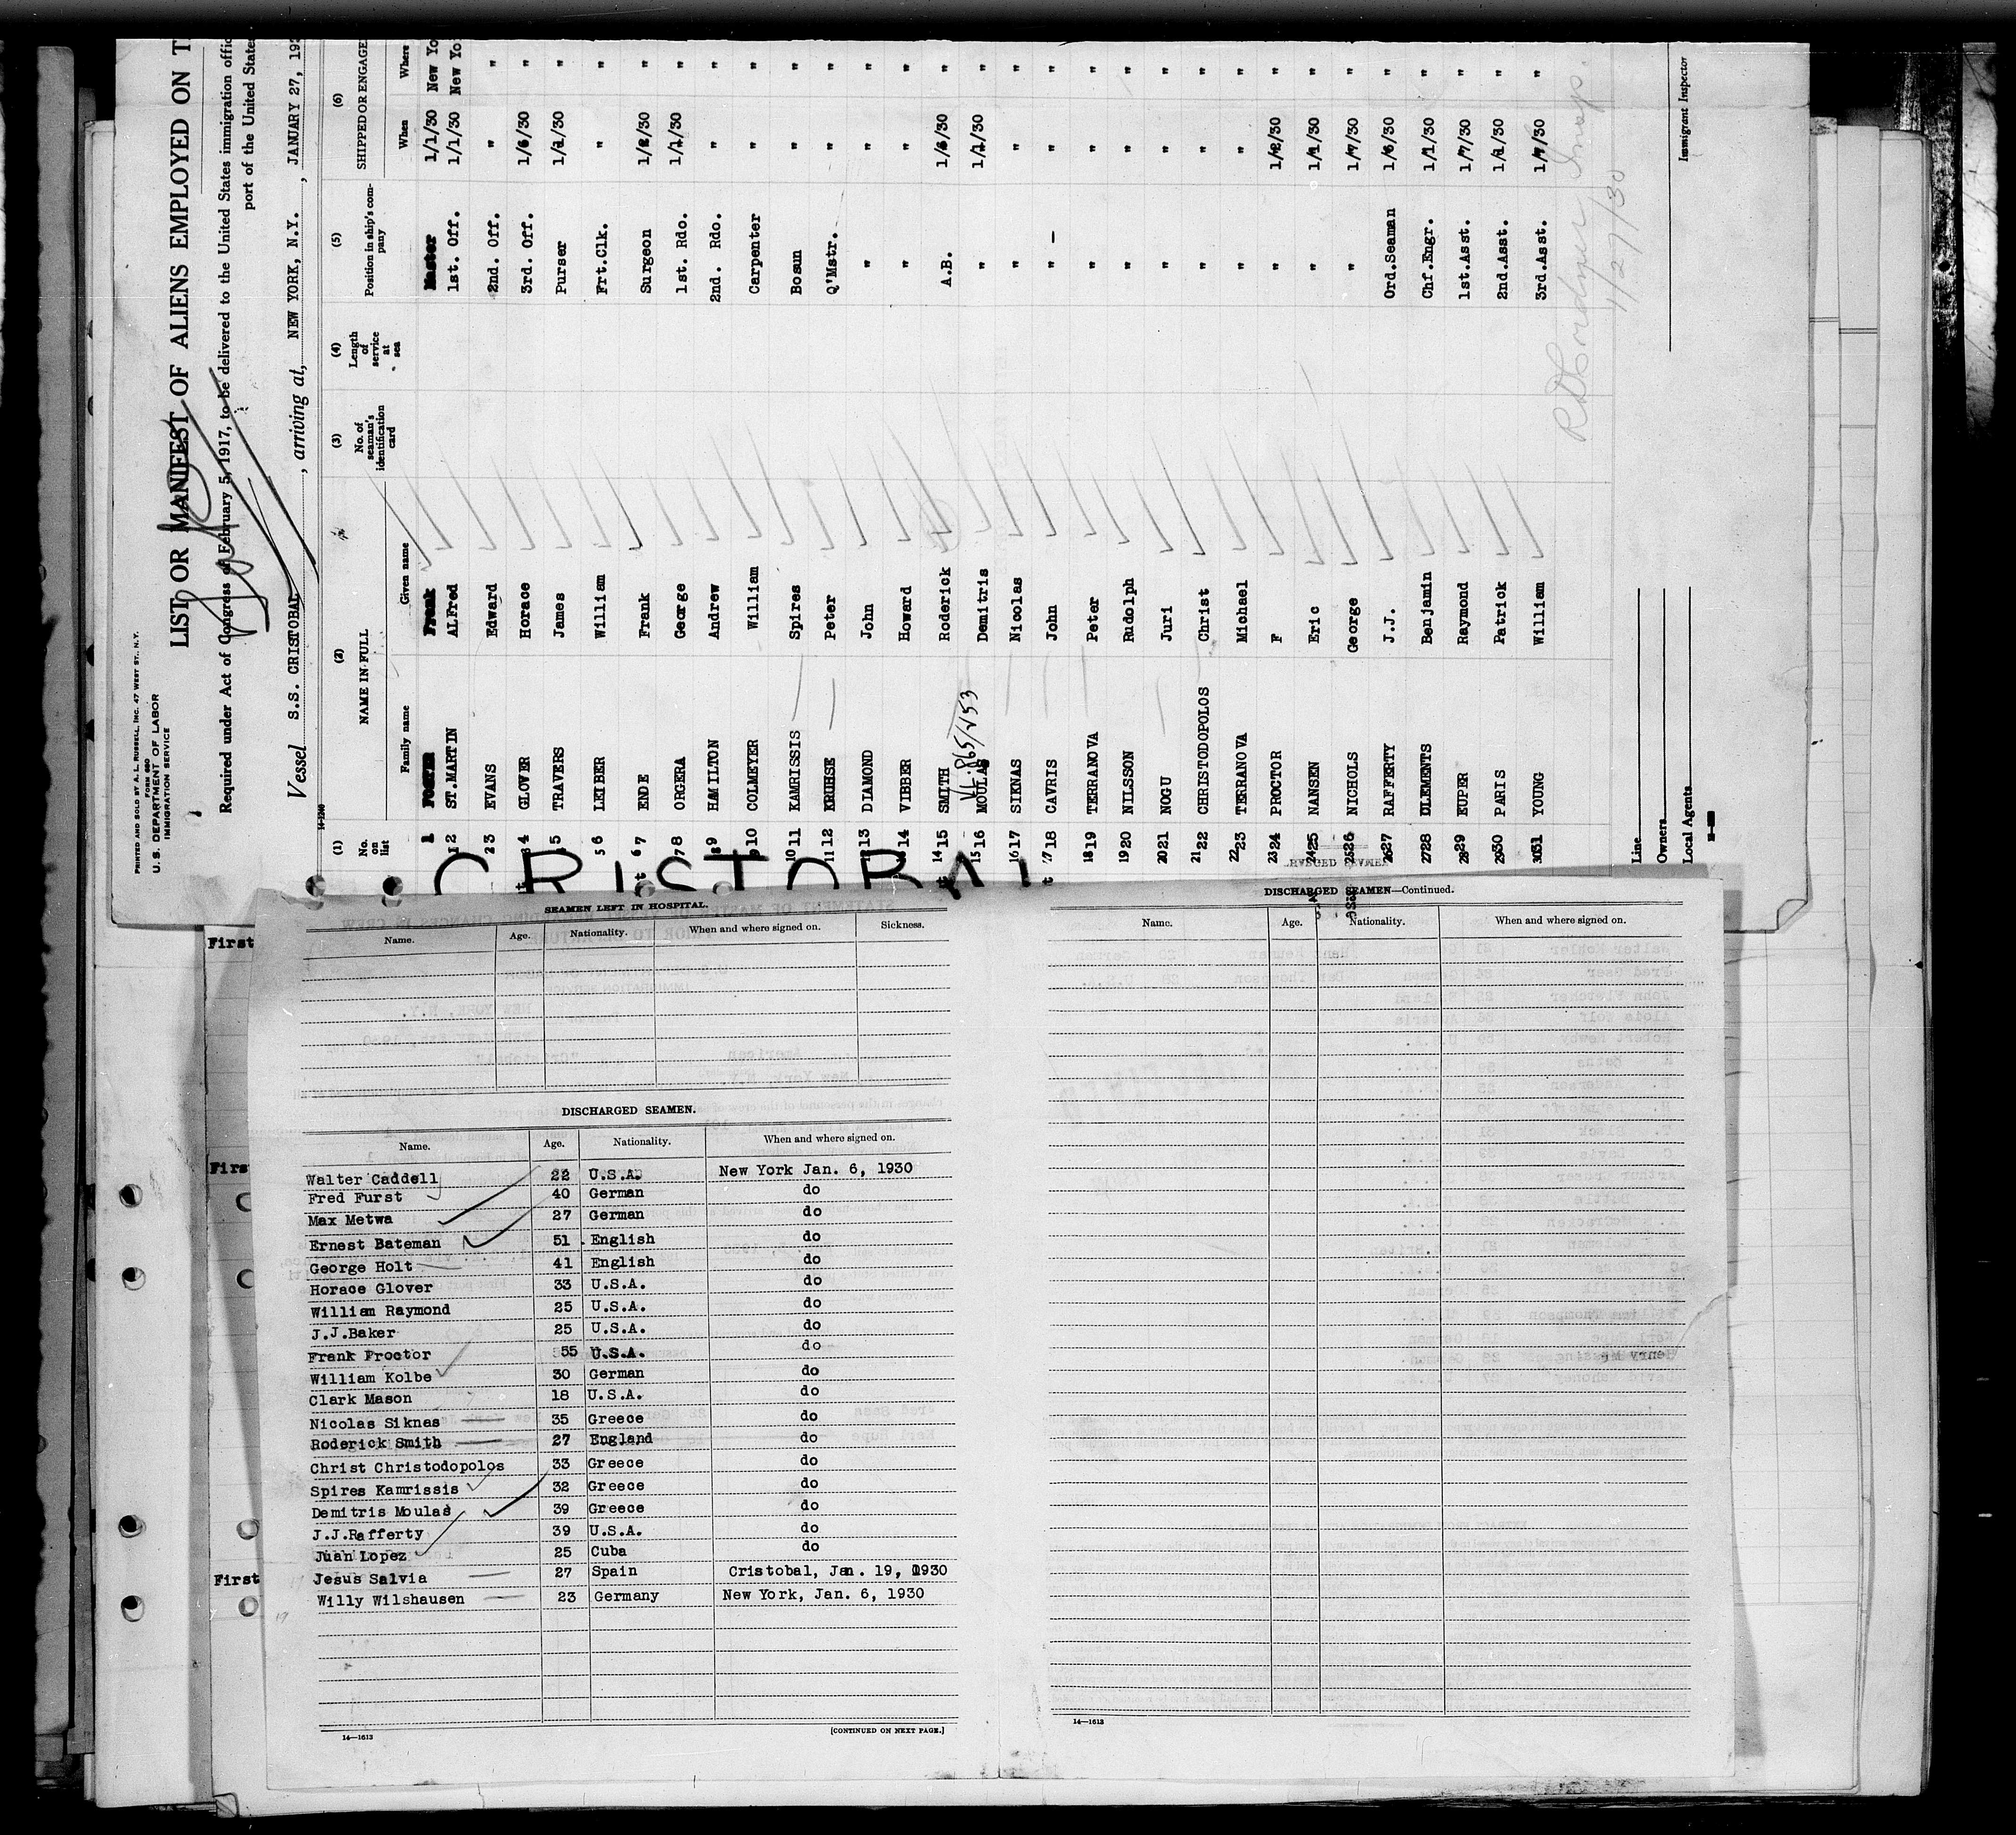 PRINTED AND SOLD BY A. L. RUSSELL, INC. 47 WEST ST., N.Y.
FORM 680
U. S. DEPARTMENT OF LABOR
IMMIGRATION SERVICE
LIST OR MANIFEST OF ALIENS EMPLOYED ON T
Required under Act of Congress of February 5, 1917, to be delivered to the United States immigration offic
port of the United State
Vessel S.S. CRISTOBAL, arriving at, NEW YORK, N.Y., JANUARY 27, 193
14-1240
(1) (2) (3) (4) (5) (6)
No. on list NAME IN FULL No. of seaman's identification card Length of service at sea Position in ship's company SHIPPED OR ENGAGE
Family name Given name When Where
1 FOSTER Frank Master 1/1/30 New Yo
2 ST.MARTIN ALFred 1st. Off. 1/1/30 New Yo
3 EVANS Edward 2nd. Off. " "
4 GLOVER Horace 3rd. Off. 1/6/30 "
5 TRAVERS James Purser 1/1/30 "
6 LEIBER William Frt.Clk. " "
7 ENDE Frank Surgeon 1/2/30 "
8 ORGERA George 1st. Rdo. 1/1/30 "
9 HAMILTON Andrew 2nd. Rdo. " "
10 COLMEYER William Carpenter " "
11 KAMRISSIS Spires Bosun " "
12 KRUHSE Peter Q'Mstr. " "
13 DIAMOND John " " "
14 VIBBER Howard " " "
15 SMITH Roderick A.B. 1/6/30 "
16 MOULAS Demitris " 1/1/30 "
17 SIKNAS Nicolas " " "
18 CAVRIS John " " "
19 TERRANOVA Peter " " "
20 NILSSON Rudolph " " "
21 NOGU Juri " " "
22 CHRISTODOPOLOS Christ " " "
23 TERRANOVA Michael " " "
24 PROCTOR F " 1/2/30 "
25 NANSEN Eric " 1/1/30 "
26 NICHOLS George " 1/7/30 "
27 RAFFERTY J.J. Ord.Seaman 1/6/30 "
28 CLEMENTS Benjamin Chf.Engr. 1/1/30 "
29 EUPER Raymond 1st.Asst. 1/7/30 "
30 PARIS Patrick 2nd.Asst. 1/1/30 "
31 YOUNG William 3rd.Asst. 1/7/30 "
1/27/30
Line
Owners
Local Agents
Immigrant Inspector
CRISTOBAL
First
First
First
SEAMEN LEFT IN HOSPITAL.
Name. Age. Nationality. When and where signed on. Sickness.
DISCHARGED SEAMEN.
Name. Age. Nationality. When and where signed on.
Walter Caddell 22 U.S.A. New York Jan. 6, 1930
Fred Furst 40 German do
Max Metwa 27 German do
Ernest Bateman 51 English do
George Holt 41 English do
Horace Glover 33 U.S.A. do
William Raymond 25 U.S.A. do
J.J.Baker 25 U.S.A. do
Frank Proctor 55 U.S.A. do
William Kolbe 30 German do
Clark Mason 18 U.S.A. do
Nicolas Siknas 35 Greece do
Roderick Smith 27 England do
Christ Christodopolos 33 Greece do
Spires Kamrissis 32 Greece do
Demitris Moulas 39 Greece do
J.J.Rafferty 39 U.S.A. do
Juan Lopez 25 Cuba do
Jesus Salvia 27 Spain Cristobal, Jan. 19, 1930
Willy Wilshausen 23 Germany New York, Jan. 6, 1930
14—1613
[CONTINUED ON NEXT PAGE.]
DISCHARGED SEAMEN—Continued.
Name. Age. Nationality. When and where signed on.
14—1613